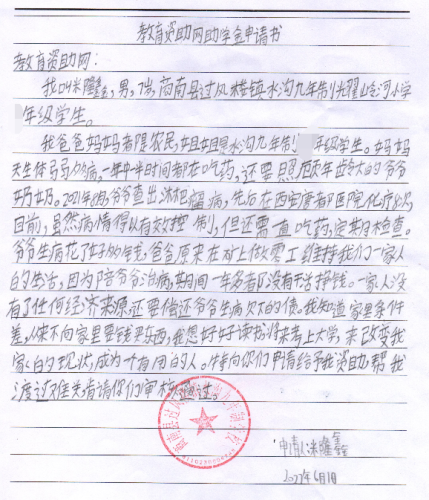 教育资助网助学金申请书
教育资助网：
我叫米 鑫，男，7岁，商南县过风楼镇水沟九年制 耀岭河小学
年级学生。
我爸爸妈妈都是农民，姐姐是水沟九年制 年级学生。妈妈
天生体弱多病，一年中一半时间都在吃药，还要照顾年龄大的爷爷
奶奶。2021年8月，爷爷查出淋巴癌病，先后在西安 都医院化疗8次，
目前，虽然病情得以有效控制，但还需一直吃药，定期检查。
爷爷生病花了好多的钱，爸爸原来在矿上做零工维持我们一家人
的生活，因为陪爷爷治病，期间一年多都没有干活挣钱。一家人没
有了任何经济来源还要偿还爷爷生病欠下的债。我知道家里条件
差，从来不向家里要钱买东西，我想好好读书将来考上大学，来改变我
家的现状，成为一个有用的人。特向你们申请给予我资助，帮我
渡过难关，肯请你们审核通过。
申请人：米 鑫
2022年6月1日